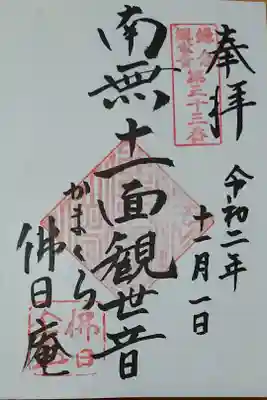 奉拝
令和二年
十一月一日
鎌倉
観世音第三十三番
南無十一面観世音
かまくら
佛日庵
佛日